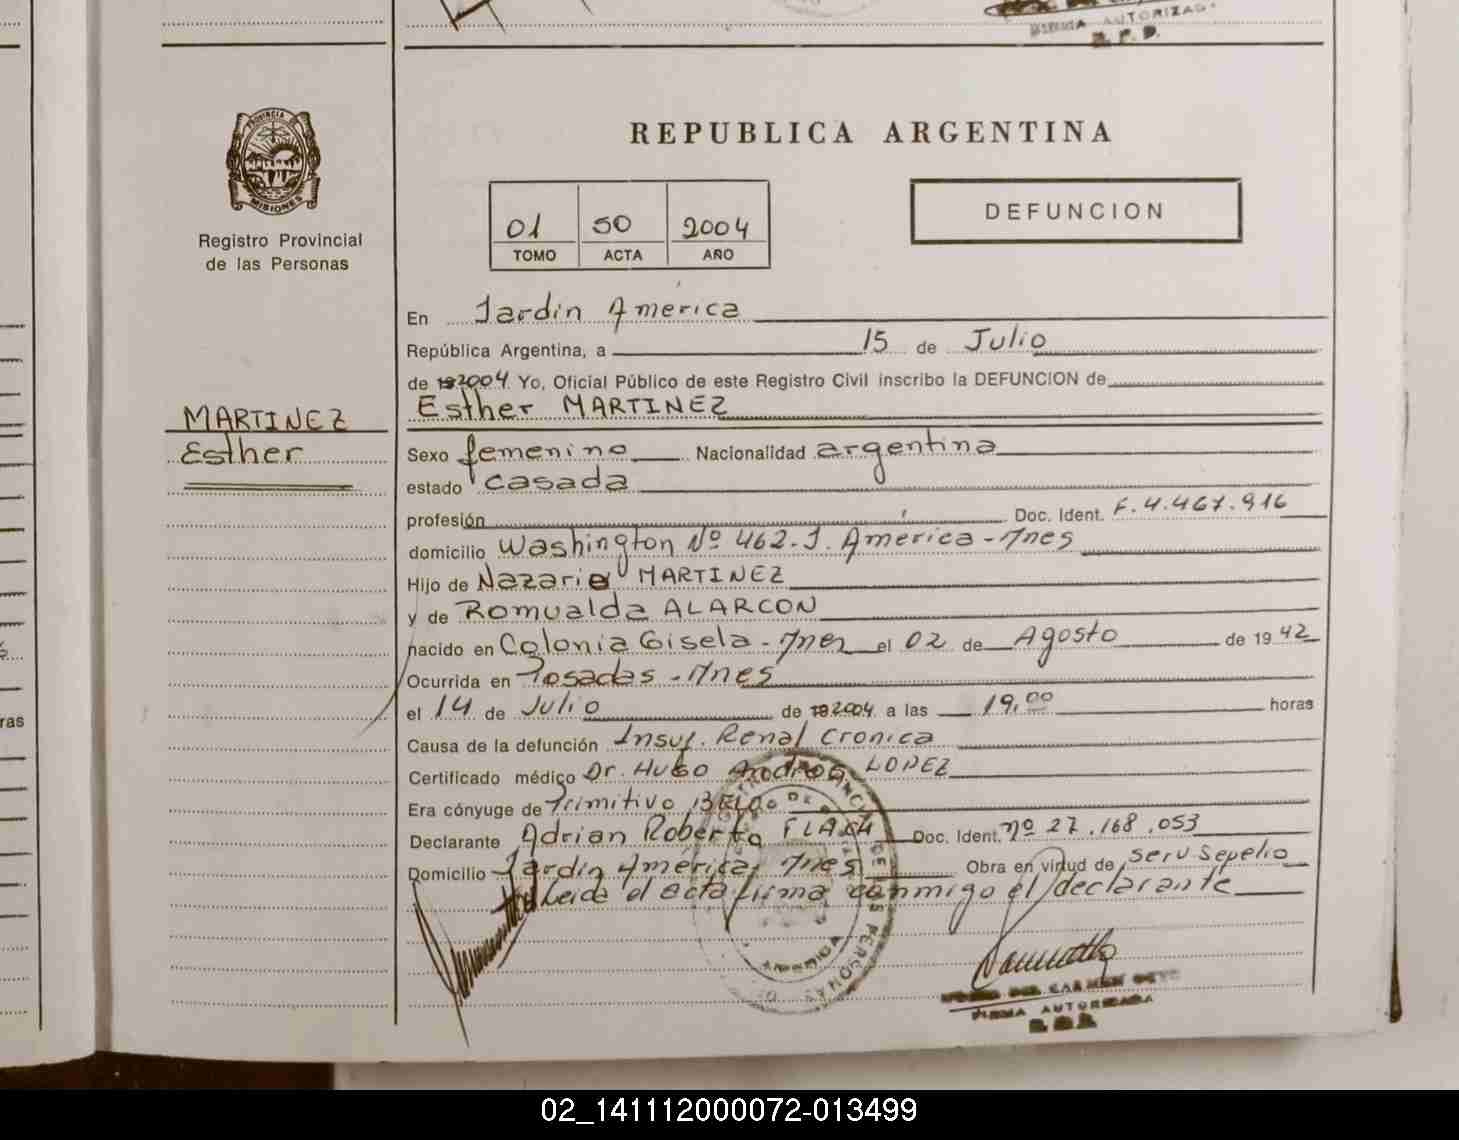 FIRMA AUTORIZAD
R. P. P.
PROVINCIA DE
MISIONES
Registro Provincial
de las Personas
REPUBLICA ARGENTINA
01 50 2004
TOMO ACTA AÑO
DEFUNCION
En Jardín América
República Argentina, a 15 de Julio
de 192004 Yo, Oficial Público de este Registro Civil inscribo la DEFUNCION de
Esther MARTINEZ
MARTINEZ
Esther
Sexo femenino Nacionalidad argentina
estado casada
profesión Doc. Ident. F. 4.467.916
domicilio Washington Nº 462-J. América-Mnes
Hijo de Nazario MARTINEZ
y de Romualda ALARCON
nacido en Colonia Gisela-Mnes el 02 de Agosto de 1942
Ocurrida en Posadas-Mnes
el 14 de Julio de 192004 a las 19,00 horas
Causa de la defunción Insuf. Renal Cronica
Certificado médico Dr. Hugo LOPEZ
Era cónyuge de Primitivo
Declarante Adrian Roberto Doc. Ident. nº 27.168.053
Domicilio Jardín América, Mnes Obra en virtud de serv sepelio
Leida el acta firma conmigo el declarante
FIRMA AUTORIZADA
ras
02_141112000072-013499